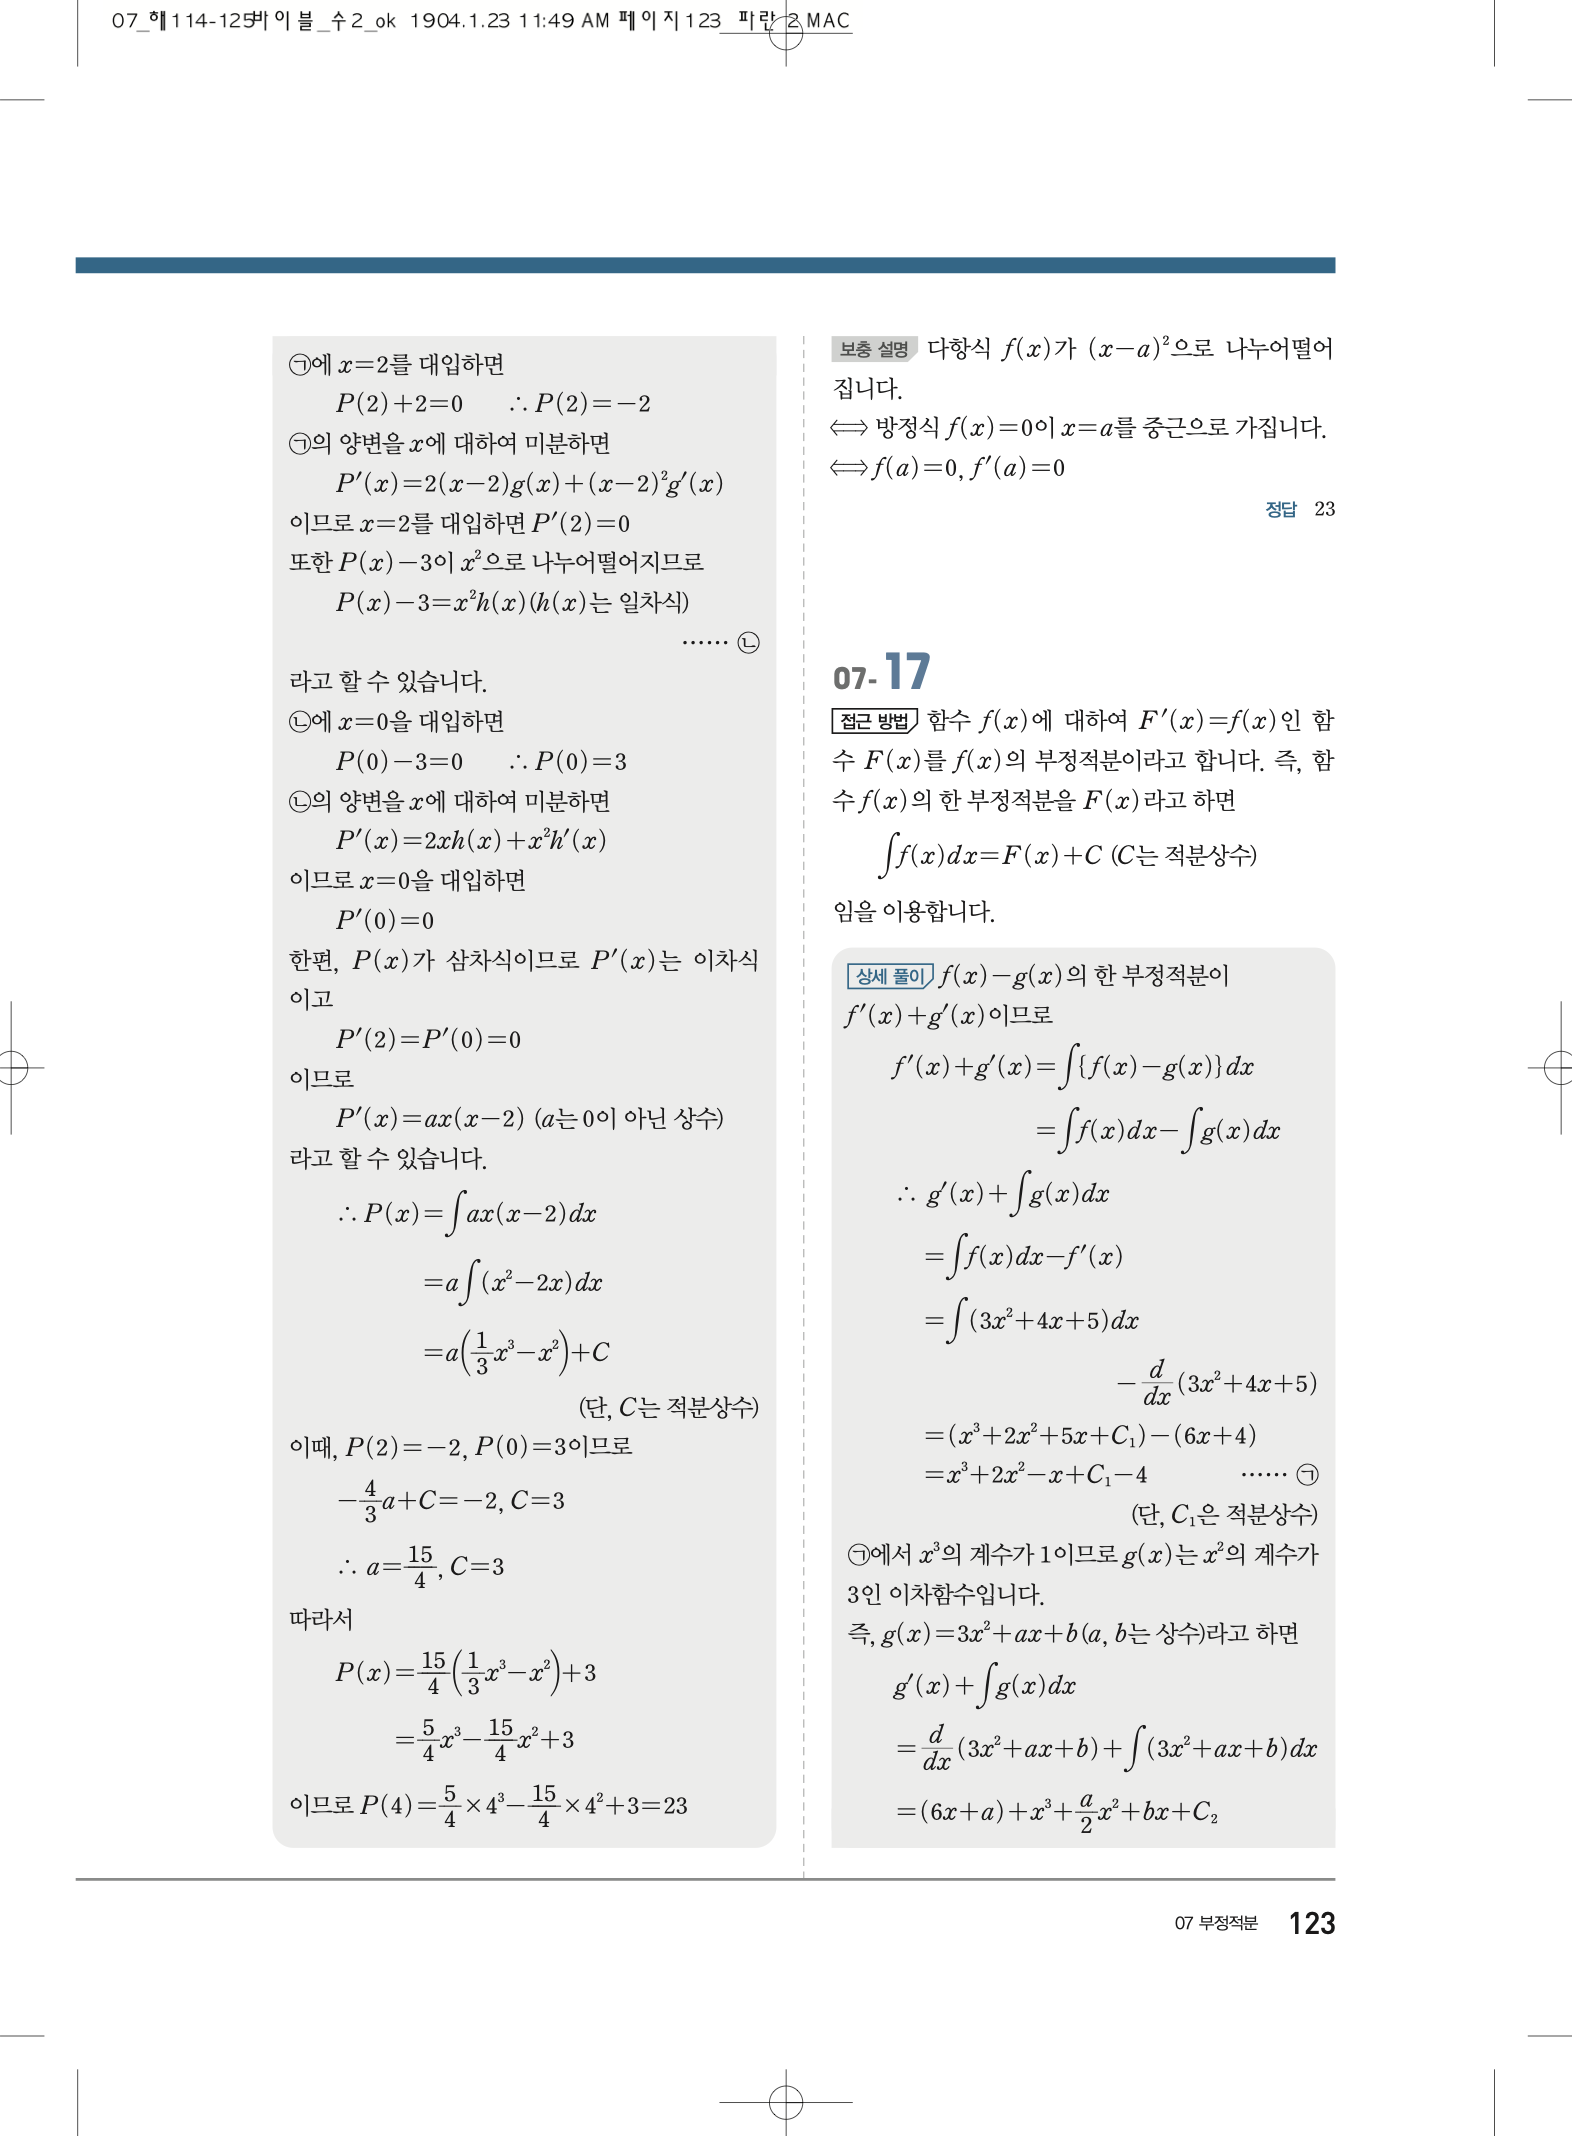 07_해114-125바이블_수2_ok 1904.1.23 11:49 AM 페이지123 파란 2 MAC
㉠에 x=2를 대입하면
P(2)+2=0 ∴ P(2)=-2
㉠의 양변을 x에 대하여 미분하면
P′(x)=2(x-2)g(x)+(x-2)²g′(x)
이므로 x=2를 대입하면 P′(2)=0
또한 P(x)-3이 x²으로 나누어떨어지므로
P(x)-3=x²h(x)(h(x)는 일차식)
…… ㉡
라고 할 수 있습니다.
㉡에 x=0을 대입하면
P(0)-3=0 ∴ P(0)=3
㉡의 양변을 x에 대하여 미분하면
P′(x)=2xh(x)+x²h′(x)
이므로 x=0을 대입하면
P′(0)=0
한편, P(x)가 삼차식이므로 P′(x)는 이차식
이고
P′(2)=P′(0)=0
이므로
P′(x)=ax(x-2) (a는 0이 아닌 상수)
라고 할 수 있습니다.
∴ P(x)=∫ax(x-2)dx
=a∫(x²-2x)dx
=a(1/3x³-x²)+C
(단, C는 적분상수)
이때, P(2)=-2, P(0)=3이므로
-4/3a+C=-2, C=3
∴ a=15/4, C=3
따라서
P(x)=15/4(1/3x³-x²)+3
=5/4x³-15/4x²+3
이므로 P(4)=5/4×4³-15/4×4²+3=23
보충 설명 다항식 f(x)가 (x-a)²으로 나누어떨어
집니다.
⟺ 방정식 f(x)=0이 x=a를 중근으로 가집니다.
⟺ f(a)=0, f′(a)=0
정답 23
07-17
접근 방법 함수 f(x)에 대하여 F′(x)=f(x)인 함
수 F(x)를 f(x)의 부정적분이라고 합니다. 즉, 함
수 f(x)의 한 부정적분을 F(x)라고 하면
∫f(x)dx=F(x)+C (C는 적분상수)
임을 이용합니다.
상세 풀이 f(x)-g(x)의 한 부정적분이
f′(x)+g′(x)이므로
f′(x)+g′(x)=∫{f(x)-g(x)}dx
=∫f(x)dx-∫g(x)dx
∴ g′(x)+∫g(x)dx
=∫f(x)dx-f′(x)
=∫(3x²+4x+5)dx
-d/dx(3x²+4x+5)
=(x³+2x²+5x+C₁)-(6x+4)
=x³+2x²-x+C₁-4 …… ㉠
(단, C₁은 적분상수)
㉠에서 x³의 계수가 1이므로 g(x)는 x²의 계수가
3인 이차함수입니다.
즉, g(x)=3x²+ax+b(a, b는 상수)라고 하면
g′(x)+∫g(x)dx
=d/dx(3x²+ax+b)+∫(3x²+ax+b)dx
=(6x+a)+x³+a/2x²+bx+C₂
07 부정적분 123